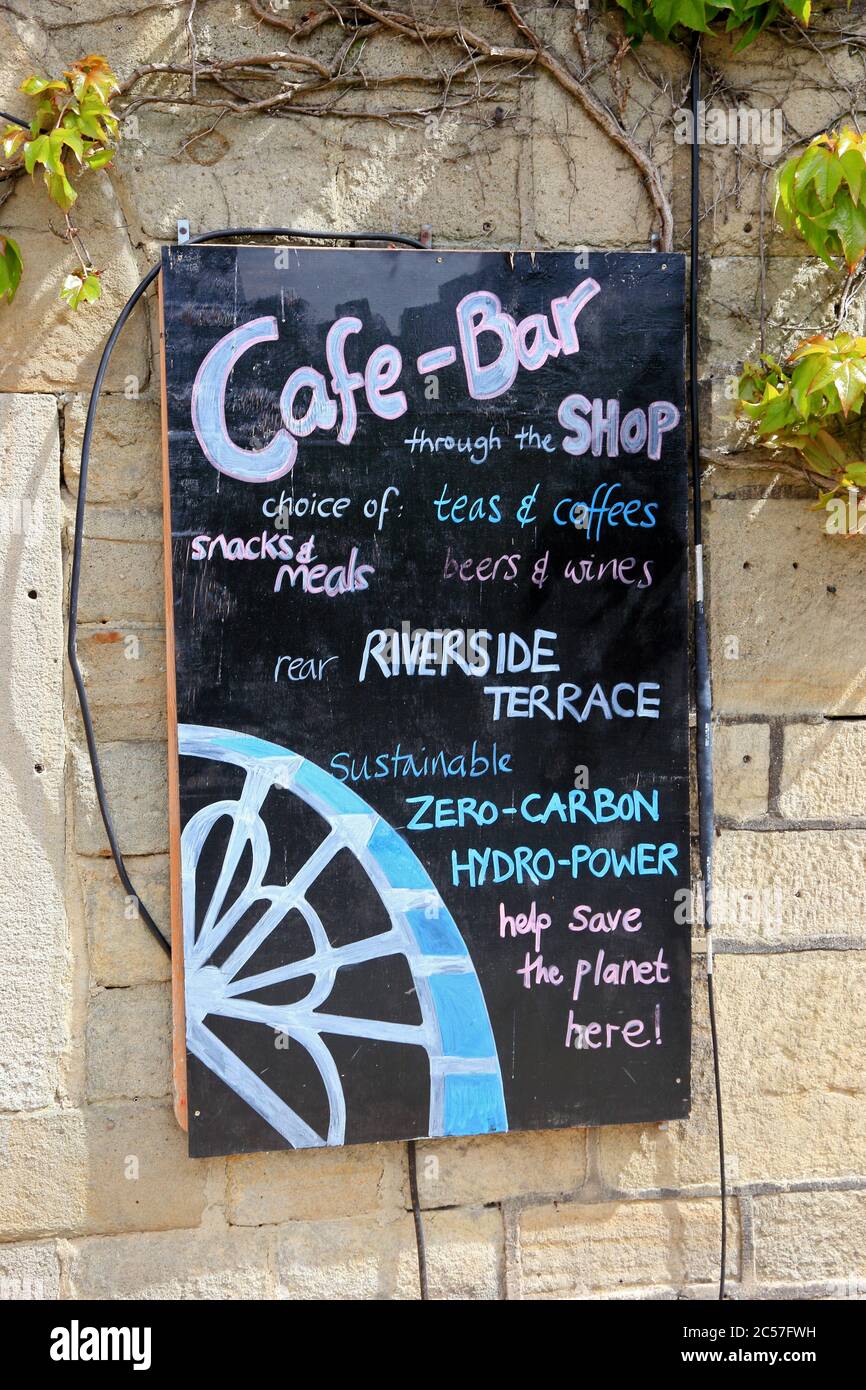 Cafe-Bar
through the SHOP
choice of: teas & coffees
snacks &
meals
beers & wines
rear RIVERSIDE
TERRACE
Sustainable
ZERO-CARBON
HYDRO-POWER
help save
the planet
here!
alamy
Image ID: 2C57FWH
www.alamy.com